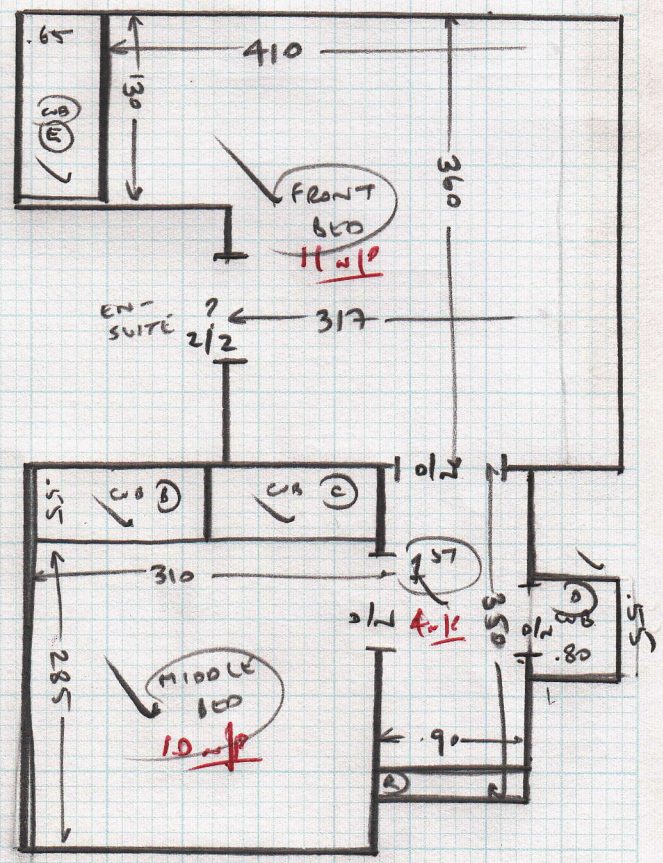 .65
410
130
CUB
E
360
FRONT
BED
11 w/P
EN-
SUITE
?
2/2
317
D/L
.55
CUB B
CUB C
310
1ST
4 w/P
D/L
350
D/L
D
.80
.55
285
MIDDLE
BED
10 w/P
.90
R